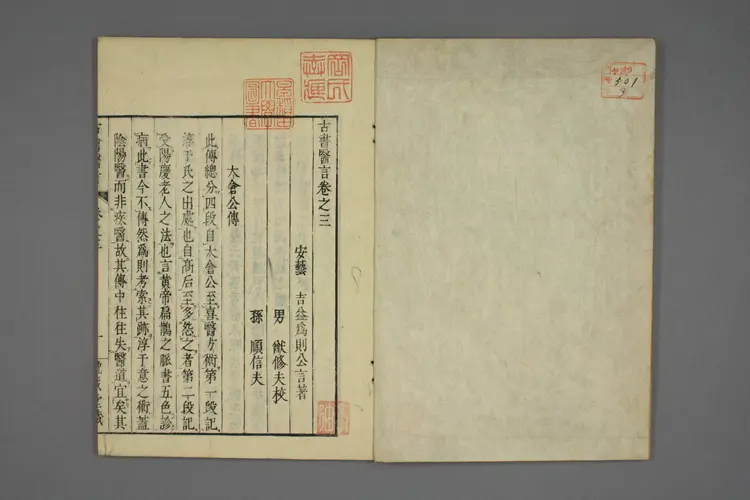 古書醫言卷之三
安藝 吉益爲則公言著
男 猷修夫校
孫 順信夫
太倉公傳
此傳總分四段自太倉公至喜醫方術第一段記
淳于氏之出處也自高后至多怨之者第二段記
受陽慶老人之法也言黃帝扁鵲之脈書五色診
病此書今不傳然爲則考索其跡淳于意之術蓋
陰陽醫而非疾醫故其傳中往往失醫道宜矣其
501
3